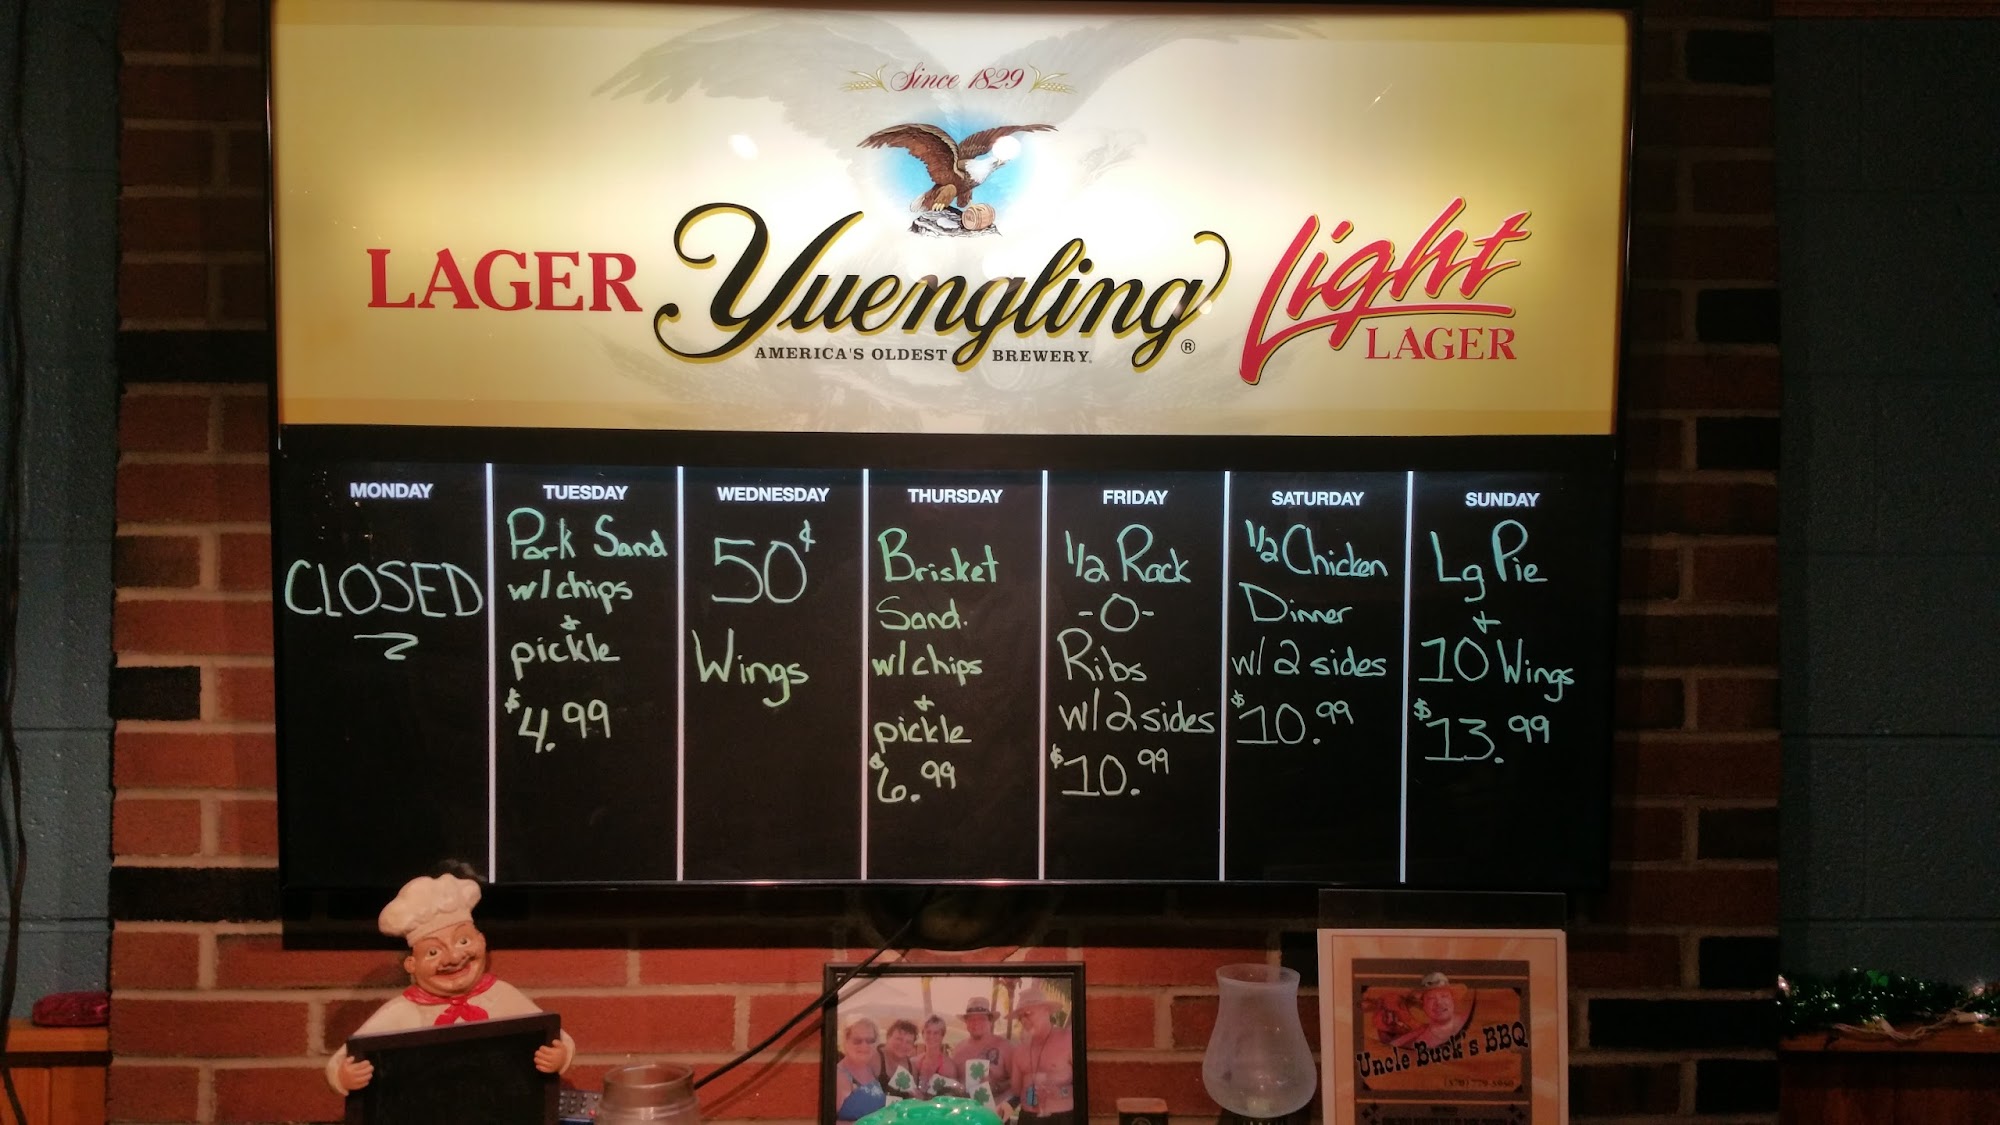 Since 1829
LAGER Yuengling® Light
AMERICA'S OLDEST BREWERY.
LAGER
MONDAY
CLOSED
TUESDAY
Pork Sand
w/chips
&
pickle
$4.99
WEDNESDAY
50¢
Wings
THURSDAY
Brisket
Sand.
w/chips
&
pickle
$6.99
FRIDAY
1/2 Rack
-O-
Ribs
w/2 sides
$10.99
SATURDAY
1/2 Chicken
Dinner
w/2 sides
$10.99
SUNDAY
Lg Pie
&
10 Wings
$13.99
Uncle Buck's BBQ